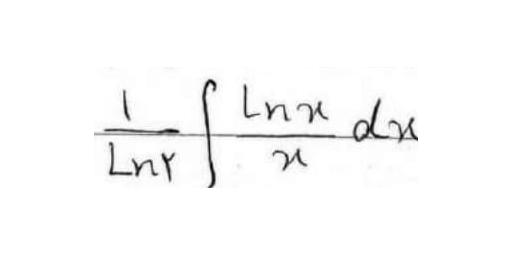 \frac{1}{Ln۲} \int \frac{Lnx}{x} dx